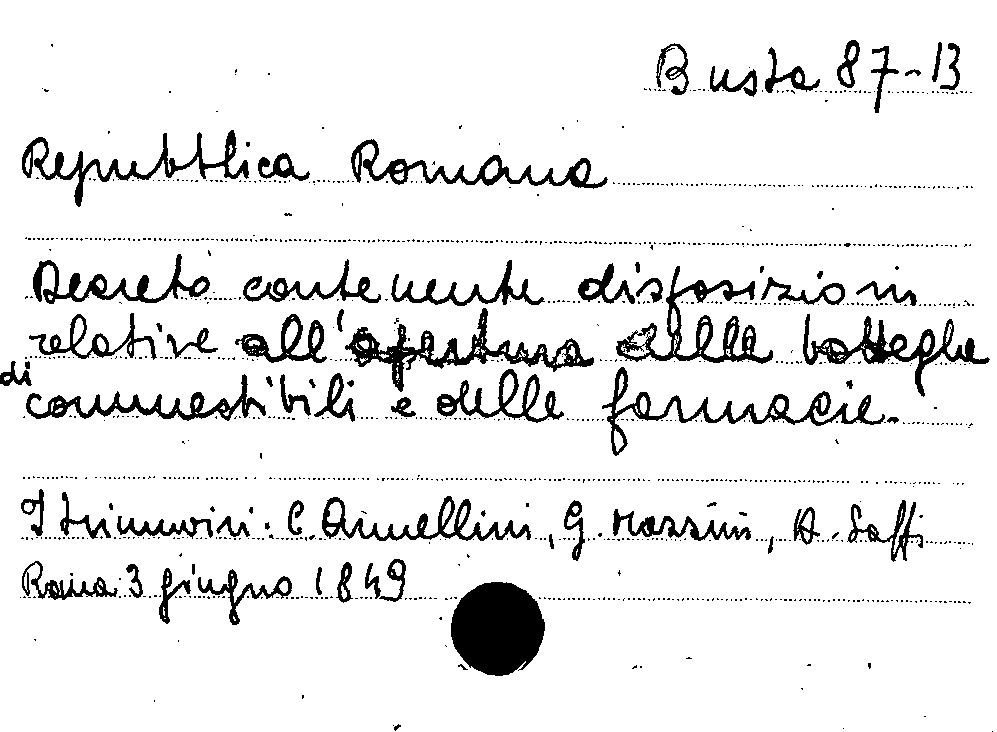 Busta 87-13
Repubblica Romana
Decreto contenente disposizioni
relative all'apertura delle botteghe
di commestibili e delle farmacie.
I triumviri: C. Armellini, G. Mazzini, A. Saffi
Roma 3 giugno 1849